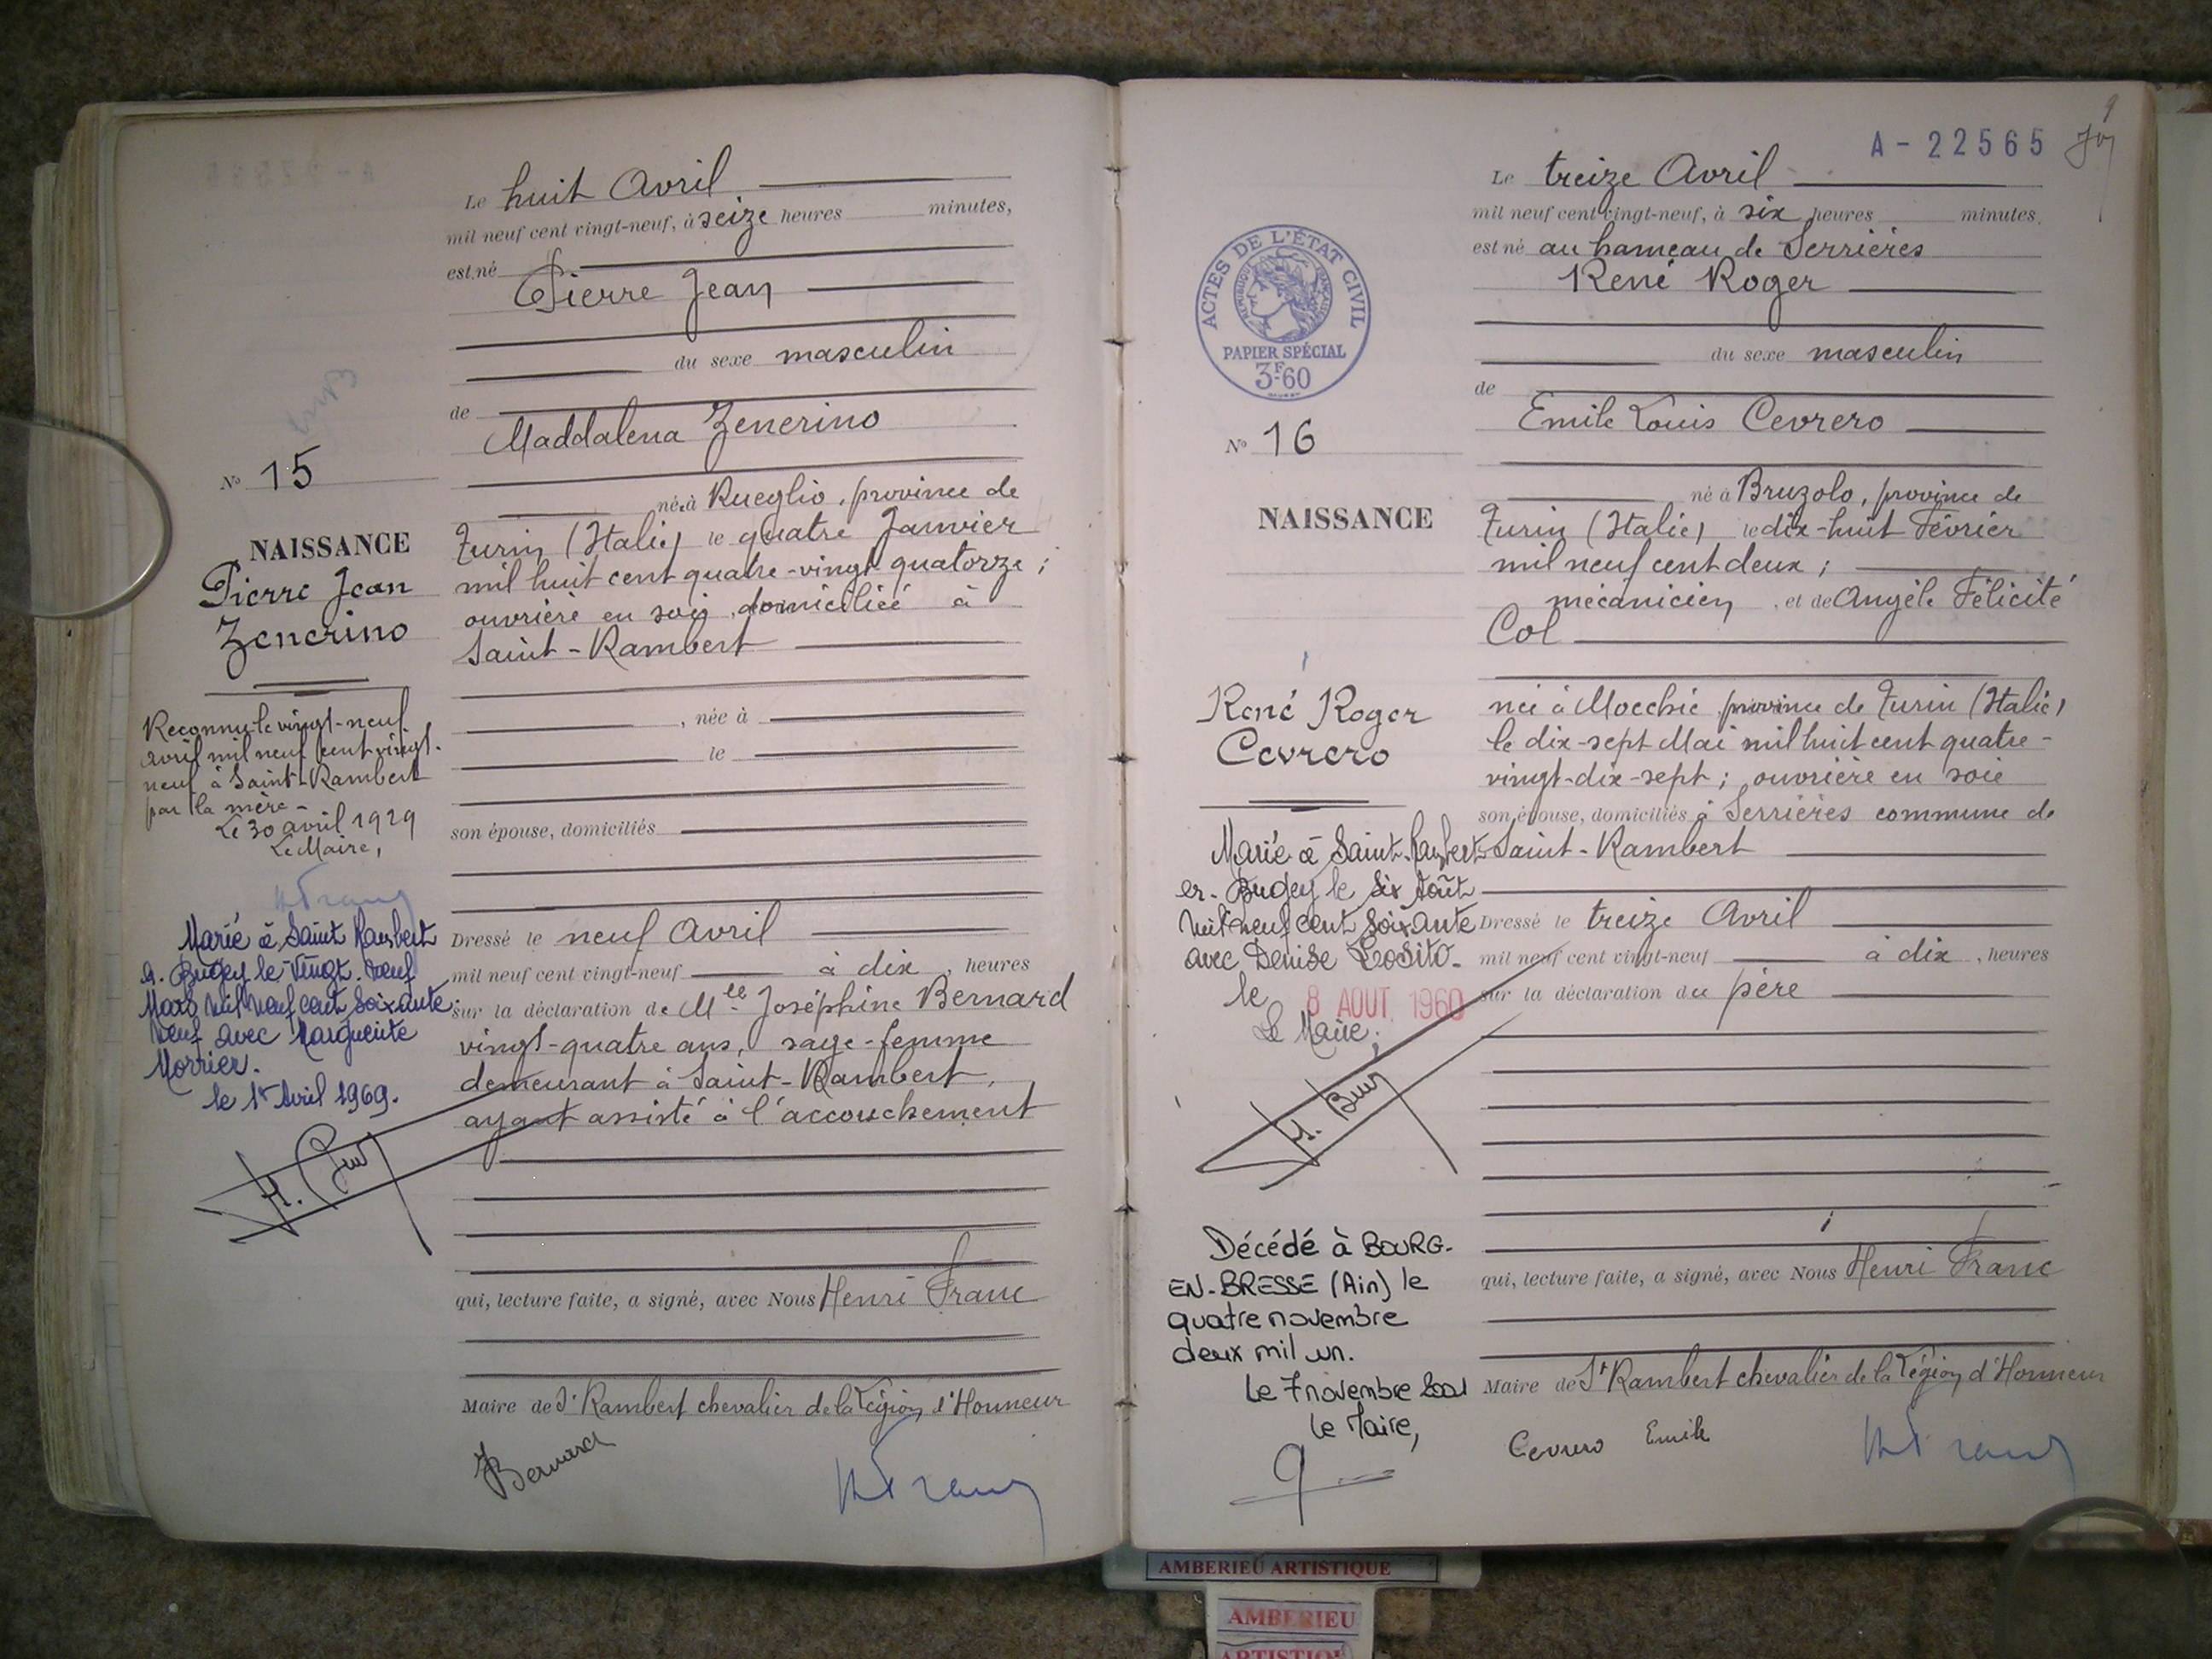 Le huit Avril
mil neuf cent vingt-neuf, à seize heures minutes,
est né
Pierre Jean
du sexe masculin
de
Maddalena Zenerino
N° 15
né à Rueglio, province de
NAISSANCE
Turin (Italie) le quatre Janvier
mil huit cent quatre-vingt quatorze ;
Pierre Jean
Zenerino
ouvrière en soie, domiciliée à
Saint-Rambert
Reconnu le vingt-neuf
avril mil neuf cent vingt-
neuf à Saint-Rambert
par la mère -
Le 30 avril 1929
Le Maire,
, née à
le
son épouse, domiciliés
Marié à Saint Rambert
en Bugey le vingt-neuf
Mars mil neuf cent soixante
neuf avec Marguerite
Morrier.
le 1er Avril 1969.
Dressé le neuf Avril
mil neuf cent vingt-neuf à dix, heures
sur la déclaration de Mlle Joséphine Bernard
vingt-quatre ans, sage-femme
demeurant à Saint-Rambert,
ayant assisté à l'accouchement
qui, lecture faite, a signé, avec Nous Henri Franc
Maire de St Rambert chevalier de la Légion d'Honneur
Bernard
HFranc
A-22565
9
Le treize Avril
mil neuf cent vingt-neuf, à six heures minutes.
est né au hameau de Serrières
René Roger
du sexe masculin
ACTES DE L'ÉTAT CIVIL
RÉPUBLIQUE FRANÇAISE
PAPIER SPÉCIAL
3F60
de
Emile Louis Cevrero
N° 16
né à Bruzolo, province de
NAISSANCE
Turin (Italie) le dix-huit Février
mil neuf cent deux ;
mécanicien, et de Angèle Félicité
Col
René Roger
Cevrero
née à Mocchie province de Turin (Italie)
le dix-sept Mai mil huit cent quatre-
vingt-dix-sept ; ouvrière en soie
son épouse, domiciliés à Serrières commune de
Saint-Rambert
Marié à Saint-Rambert
en-Bugey le six Août
mil neuf cent soixante
avec Denise Losito-
le 8 AOUT 1960
Le Maire,
Dressé le treize Avril
mil neuf cent vingt-neuf à dix, heures
sur la déclaration du père
Décédé à BOURG-
EN-BRESSE (Ain) le
quatre novembre
deux mil un.
Le 7 novembre 2001
le Maire,
qui, lecture faite, a signé, avec Nous Henri Franc
Maire de St Rambert chevalier de la Légion d'Honneur
Cevrero Emile
HFranc
AMBERIEU ARTISTIQUE
AMBERIEU
ARTISTIQUE